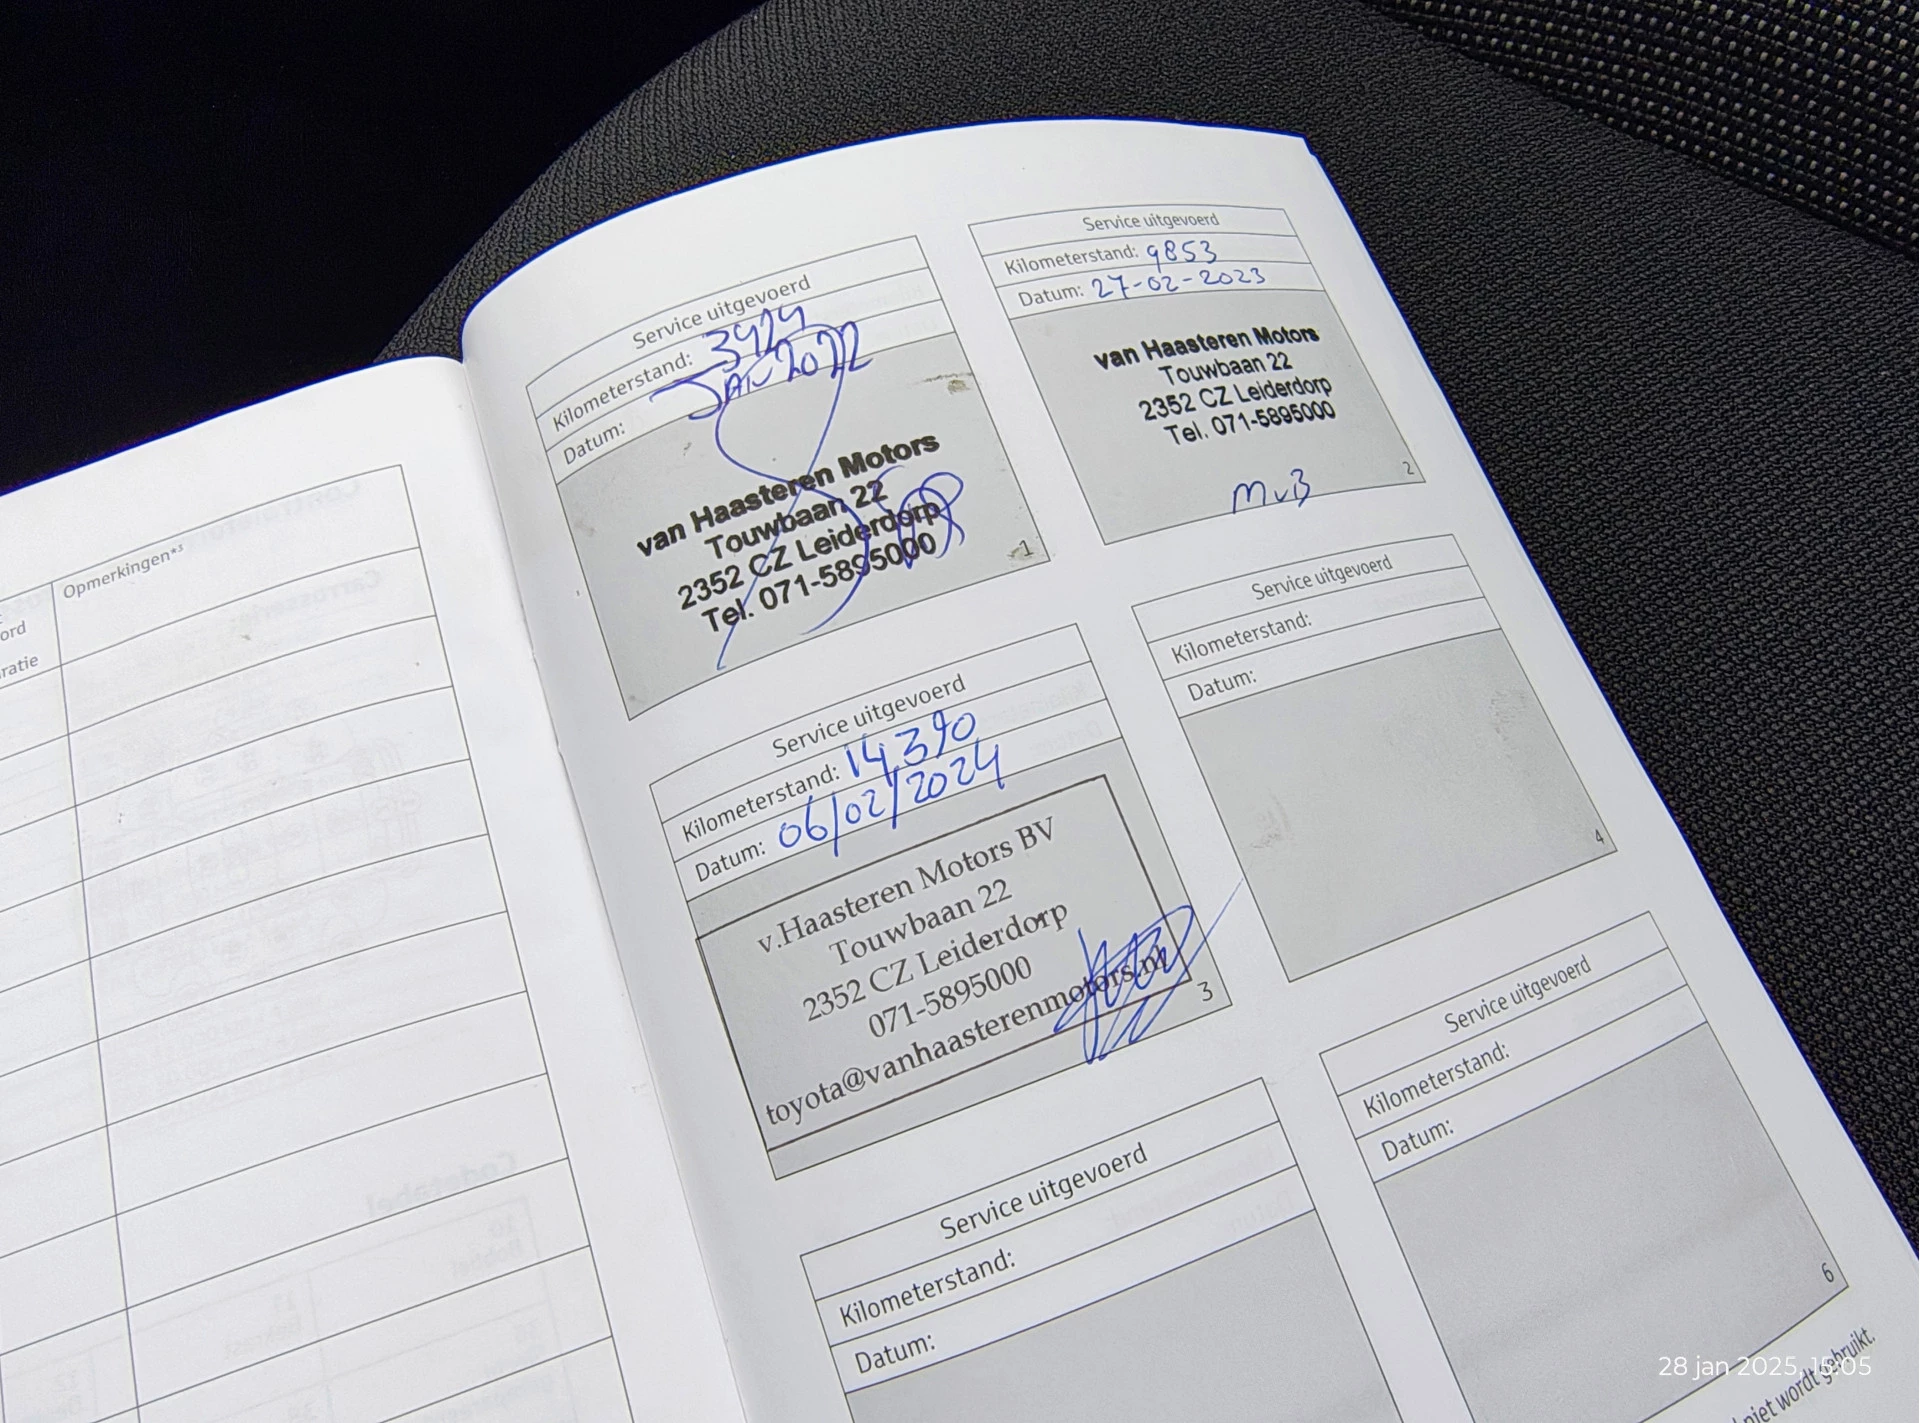 Opmerkingen*³
ord
ratie
Service uitgevoerd
Kilometerstand: 3424
Datum: JAN 2022
van Haasteren Motors
Touwbaan 22
2352 CZ Leiderdorp
Tel. 071-5895000
1
Service uitgevoerd
Kilometerstand: 9853
Datum: 27-02-2023
van Haasteren Motors
Touwbaan 22
2352 CZ Leiderdorp
Tel. 071-5895000
MvB
2
Service uitgevoerd
Kilometerstand: 14.390
Datum: 06/02/2024
v.Haasteren Motors BV
Touwbaan 22
2352 CZ Leiderdorp
071-5895000
toyota@vanhaasterenmotors.nl
3
Service uitgevoerd
Kilometerstand:
Datum:
4
Service uitgevoerd
Kilometerstand:
Datum:
Service uitgevoerd
Kilometerstand:
Datum:
6
niet wordt gebruikt.
28 jan 2025, 15:05